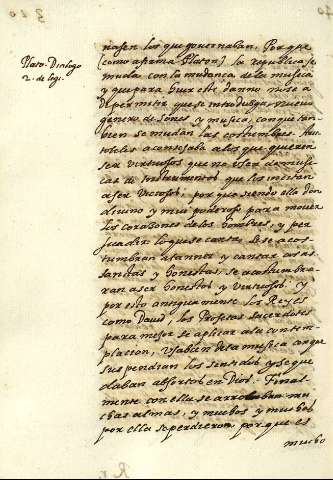 Plato. Dialogo
2. de legi.
nasen los que governaban. Porque
(como afirma Platon) la republica se
muda con la mudanza de la musica
y que para huir este danno no se a
de permitir que se introduzga nuevo
genero de sones y musica, conque tan
bien se mudan las costumbres. Aris
toteles aconsejaba a los que quieren
ser virtuosos que no usen de musi
cas de Instrumentos que los incitan
a ser viciosos; porque siendo ella don
divino y muy poderoso para mover
los corazones de los hombres, y per
suadir lo que se canta. Si se acos
tumbran a tanner y cantar cosas
sanctas y honestas, se acostumbra
ran a ser honestos y virtuosos. y
por esto antiguamente los Reyes
como David, los Profetas, sacerdotes
para mejor se aplicar a la contem
placion, usaban de la musica conque
suspendian los sentidos y se que
daban absortos en Dios. Final
mente con ella se arrobaban mu
chas almas, y muchos y muchos
por ella se perdieron, porque es
mucho